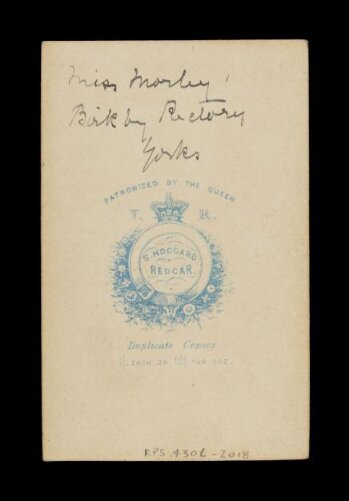 Miss Morley
Birkby Rectory
Yorks
PATRONIZED BY THE QUEEN
V. R.
S. HOGGARD
REDCAR
Duplicate Copies
1/. EACH OR 10/ PER DOZ
RPS.4306-2018